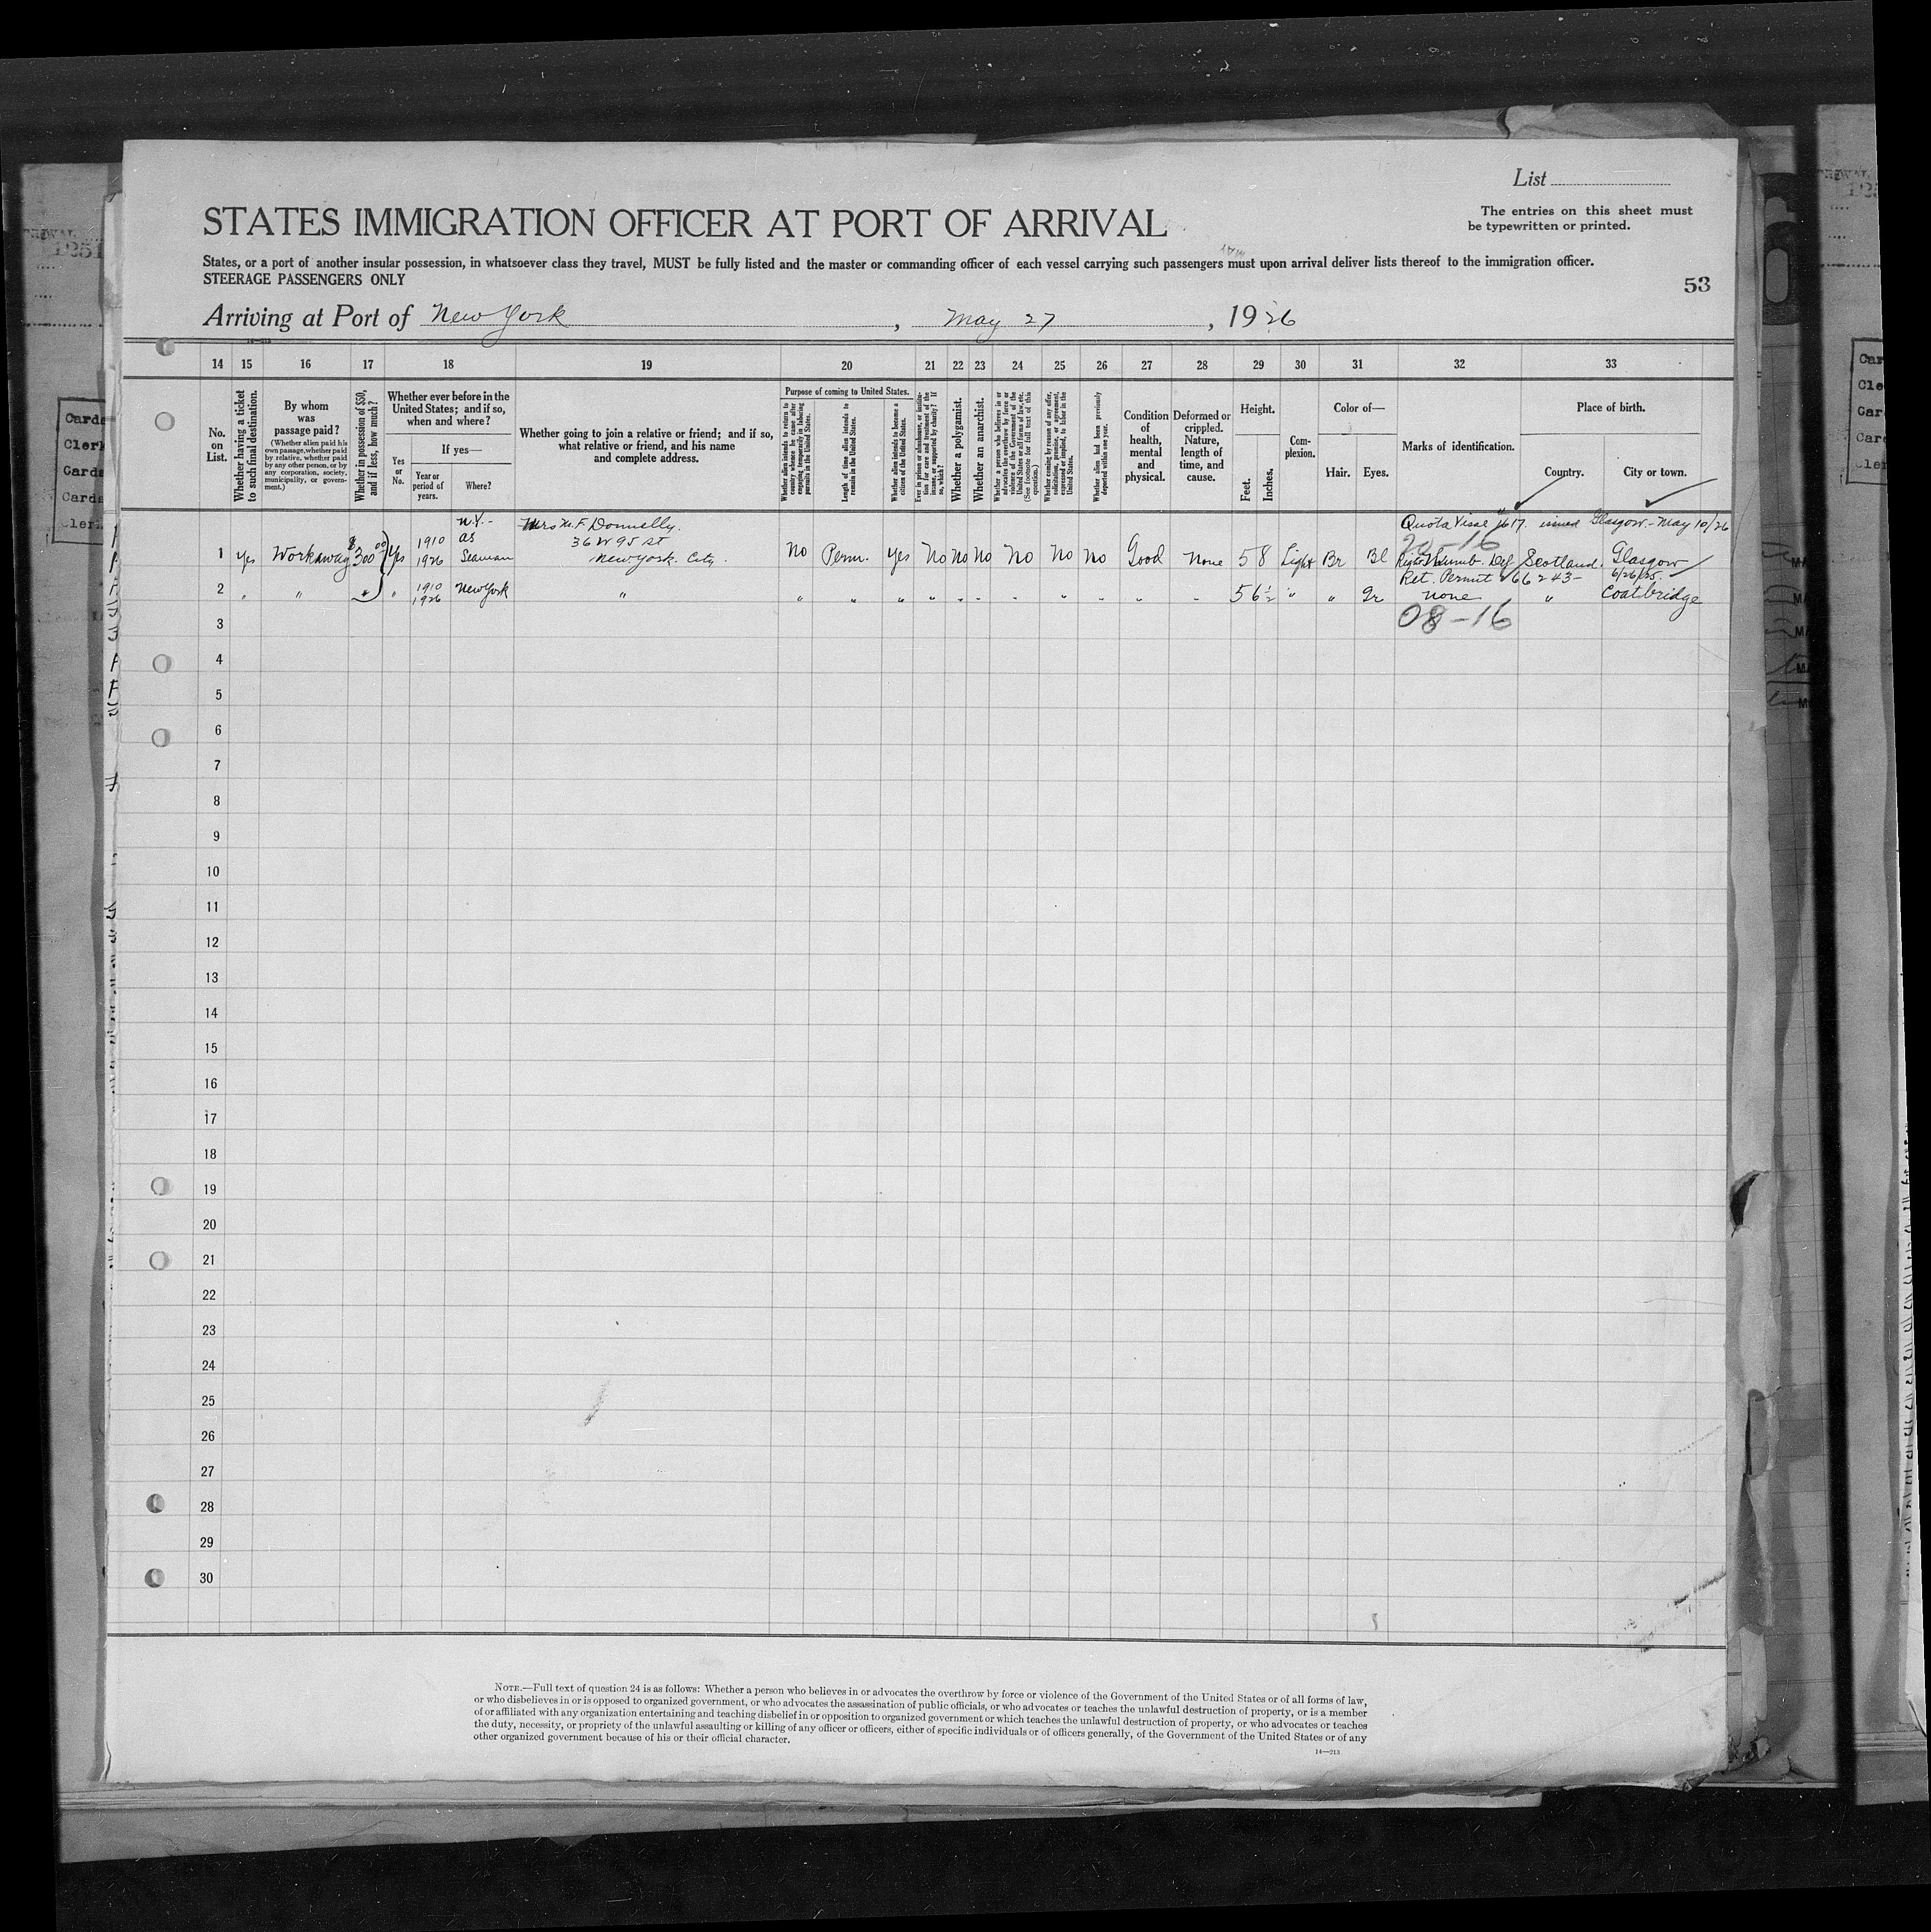 List
STATES IMMIGRATION OFFICER AT PORT OF ARRIVAL
The entries on this sheet must
be typewritten or printed.
States, or a port of another insular possession, in whatsoever class they travel, MUST be fully listed and the master or commanding officer of each vessel carrying such passengers must upon arrival deliver lists thereof to the immigration officer.
STEERAGE PASSENGERS ONLY
53
Arriving at Port of New York, May 27, 1926
14 15 16 17 18 19 20 21 22 23 24 25 26 27 28 29 30 31 32 33
No. on List.
Whether having a ticket to such final destination.
By whom was passage paid?
(Whether alien paid his own passage, whether paid by relative, whether paid by any other person, or by any corporation, society, municipality, or government.)
Whether in possession of $50, and if less, how much?
Whether ever before in the United States; and if so, when and where?
Yes or No.
If yes—
Year or period of years.
Where?
Whether going to join a relative or friend; and if so, what relative or friend, and his name and complete address.
Purpose of coming to United States.
Whether alien intends to return to country whence he came after engaging temporarily in laboring pursuits in the United States.
Length of time alien intends to remain in the United States.
Whether alien intends to become a citizen of the United States.
Ever in prison or almshouse, or institution for care and treatment of the insane, or supported by charity? If so, which?
Whether a polygamist.
Whether an anarchist.
Whether a person who believes in or advocates the overthrow by force or violence of the Government of the United States or all forms of law, etc. (See footnote for full text of this question.)
Whether coming by reason of any offer, solicitation, promise, or agreement, expressed or implied, to labor in the United States.
Whether alien had been previously deported within one year.
Condition of health, mental and physical.
Deformed or crippled. Nature, length of time, and cause.
Height.
Feet. Inches.
Complexion.
Color of—
Hair. Eyes.
Marks of identification.
Place of birth.
Country. City or town.
N.Y.- Mrs M. F. Donnelly. Quota Visae # 1617. issued Glasgow - May 10/26
as 36 W 95 St 20-16
1 Yes Workaway $300 00 Yes 1910 1926 Seaman New York. City. No Perm. Yes No No No No No No Good None 5 8 Light Br Bl Right Thumb Def Scotland. Glasgow
Ret. Permit 66243- 6/26/25.
2 " " " " 1910 1926 New York " " " " " " " " " " " " 5 6½ " " Gr none " Coatbridge
08-16
3
4
5
6
7
8
9
10
11
12
13
14
15
16
17
18
19
20
21
22
23
24
25
26
27
28
29
30
NOTE.—Full text of question 24 is as follows: Whether a person who believes in or advocates the overthrow by force or violence of the Government of the United States or of all forms of law,
or who disbelieves in or is opposed to organized government, or who advocates the assassination of public officials, or who advocates or teaches the unlawful destruction of property, or is a member
of or affiliated with any organization entertaining and teaching disbelief in or opposition to organized government or which teaches the unlawful destruction of property, or who advocates or teaches
the duty, necessity, or propriety of the unlawful assaulting or killing of any officer or officers, either of specific individuals or of officers generally, of the Government of the United States or of any
other organized government because of his or their official character.
14—213